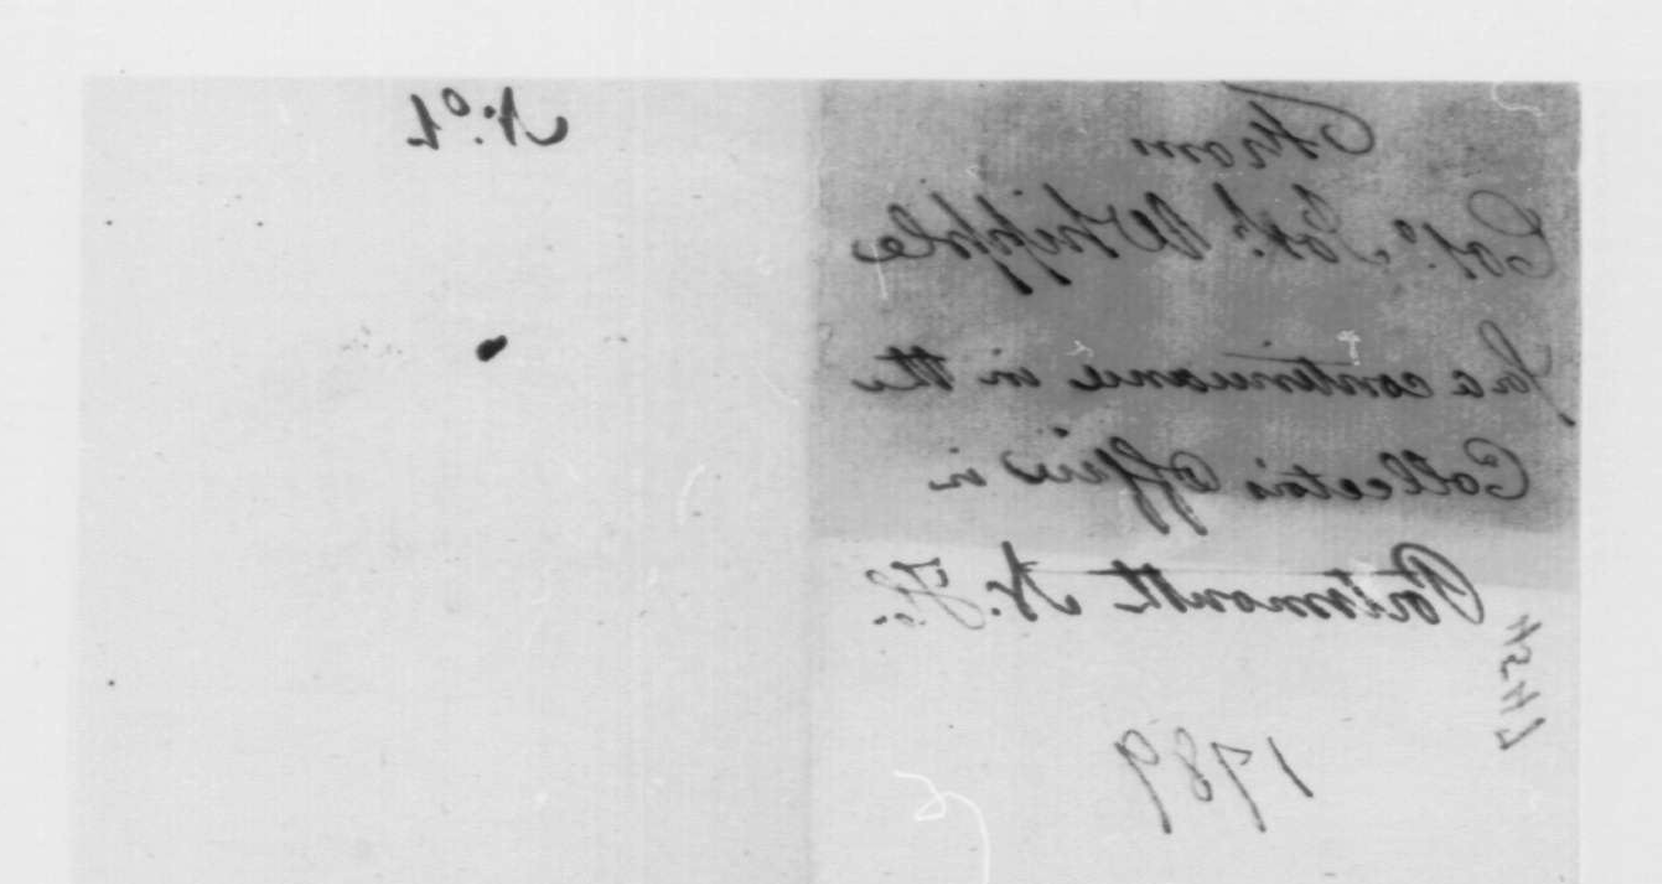 From
Colo. Jos: Whipple
for a continuance in the
Collectors Office in
Portsmouth N. H.
1789
No. 1